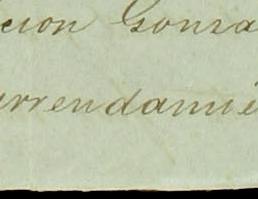 cion Gonza
arrendamie